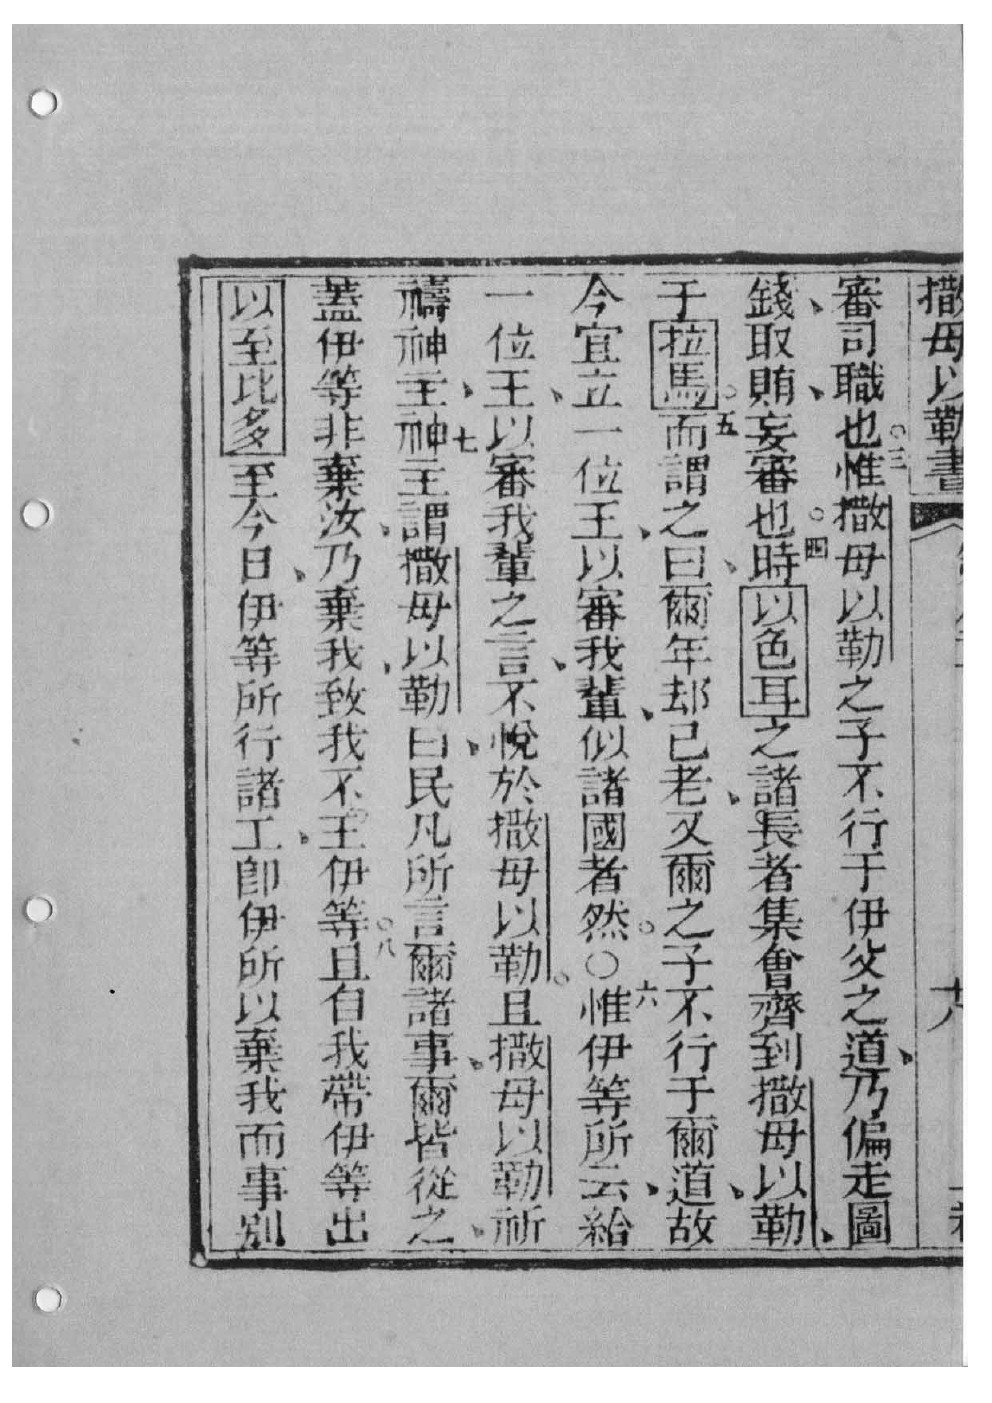 撒母以勒書
審司職也○三惟撒母以勒之子不行于伊父之道、乃偏走圖
錢、取賄、妄審也○四時以色耳之諸長者集會齊到撒母以勒、
于拉馬○五而謂之曰、爾年却已老、又爾之子不行于爾道、故
今宜立一位王、以審我輩、似諸國者然○○六惟伊等所云、給
一位王、以審我輩之言、不悅於撒母以勒○且撒母以勒祈
禱神主、神七主謂撒母以勒曰、民凡所言爾諸事、爾皆從之、
蓋伊等非棄汝、乃棄我、致我不王伊等○八且自我帶伊等出
以至比多至今日、伊等所行諸工、卽伊所以棄我而事別